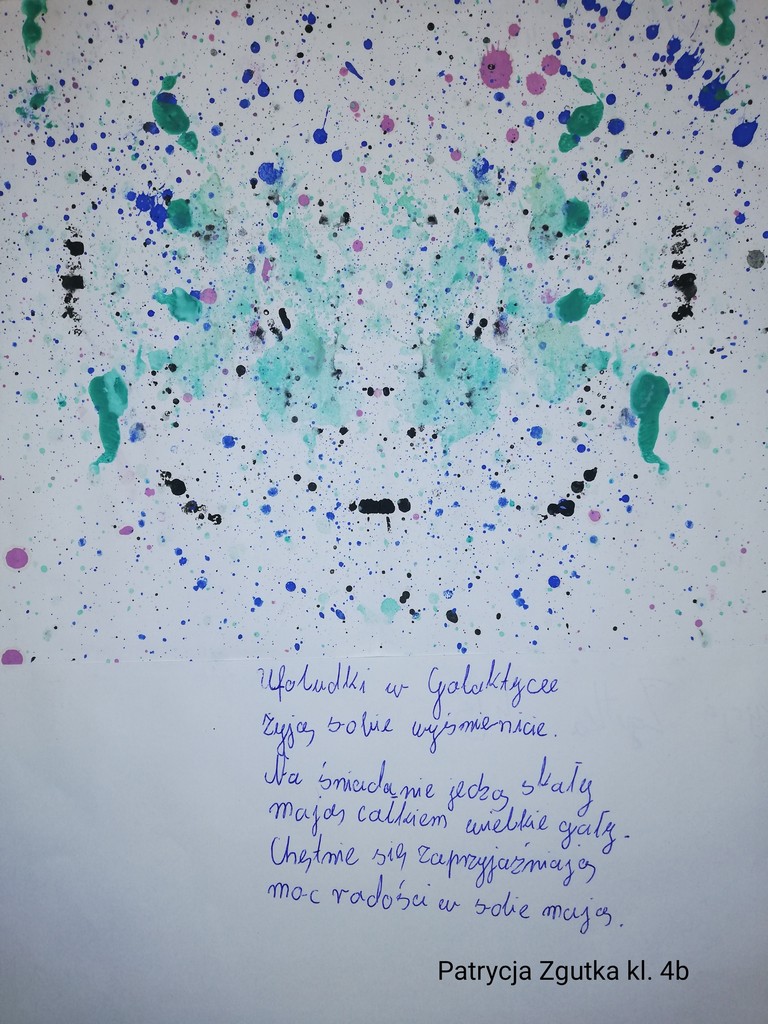 Ufoludki w Galaktyce
żyją sobie wyśmienicie.
Na śniadanie jedzą skały
mają całkiem wielkie gały.
Chętnie się zaprzyjaźniają
moc radości w sobie mają.
Patrycja Zgutka kl. 4b